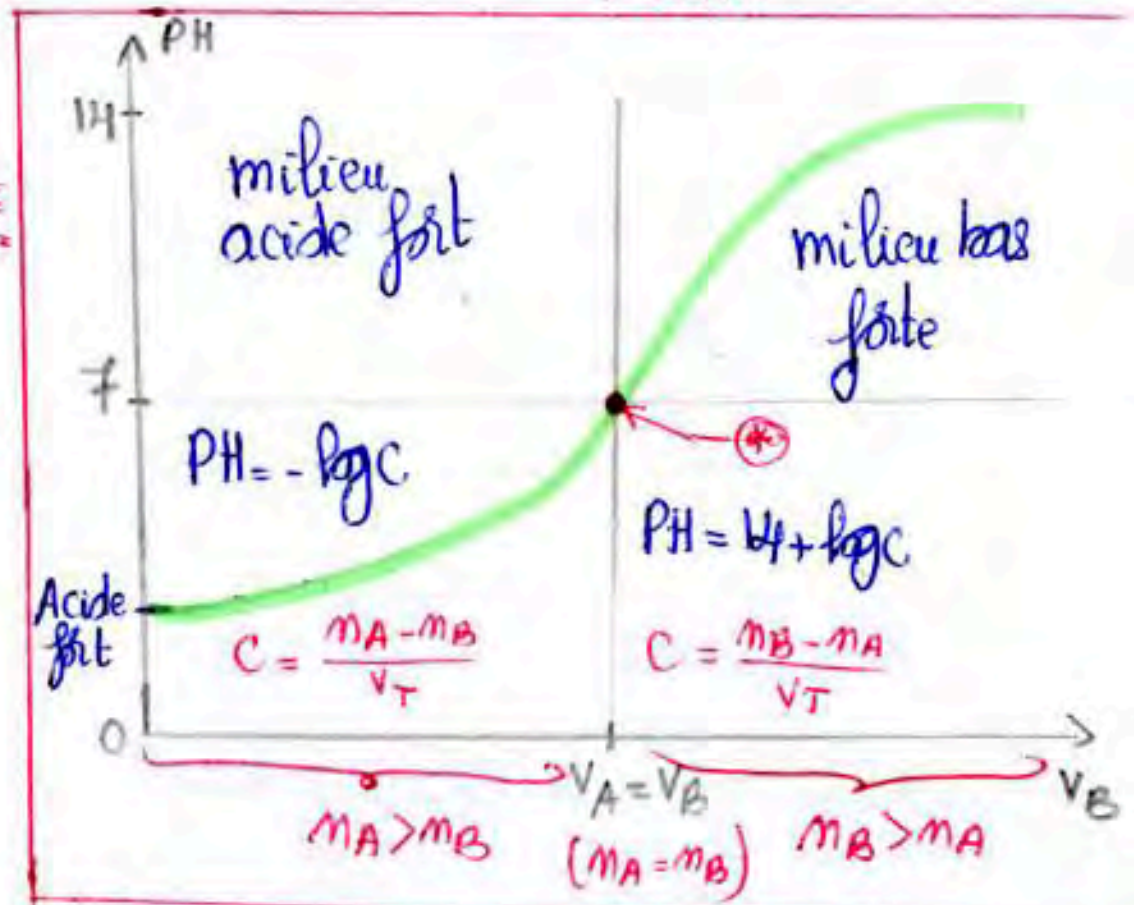 PH
14
milieu
acide fort
milieu bas
forte
7
(*)
PH = - log C
PH = 14 + log C
Acide
fort
C = nA - nB / VT
C = nB - nA / VT
0
VA = VB
VB
nA > nB
(nA = nB)
nB > nA